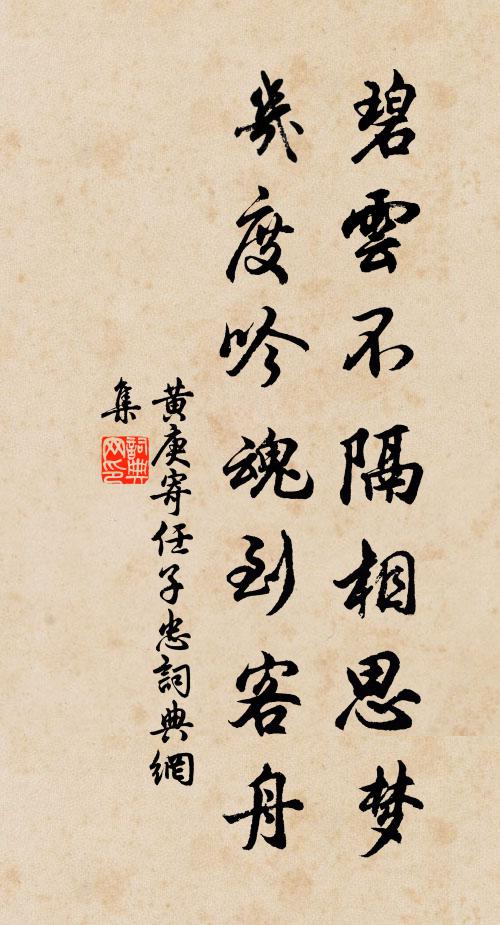 碧雲不隔相思梦
幾度吟魂到客舟
黄庚寄任子忠詞典網
集
詞典
网印